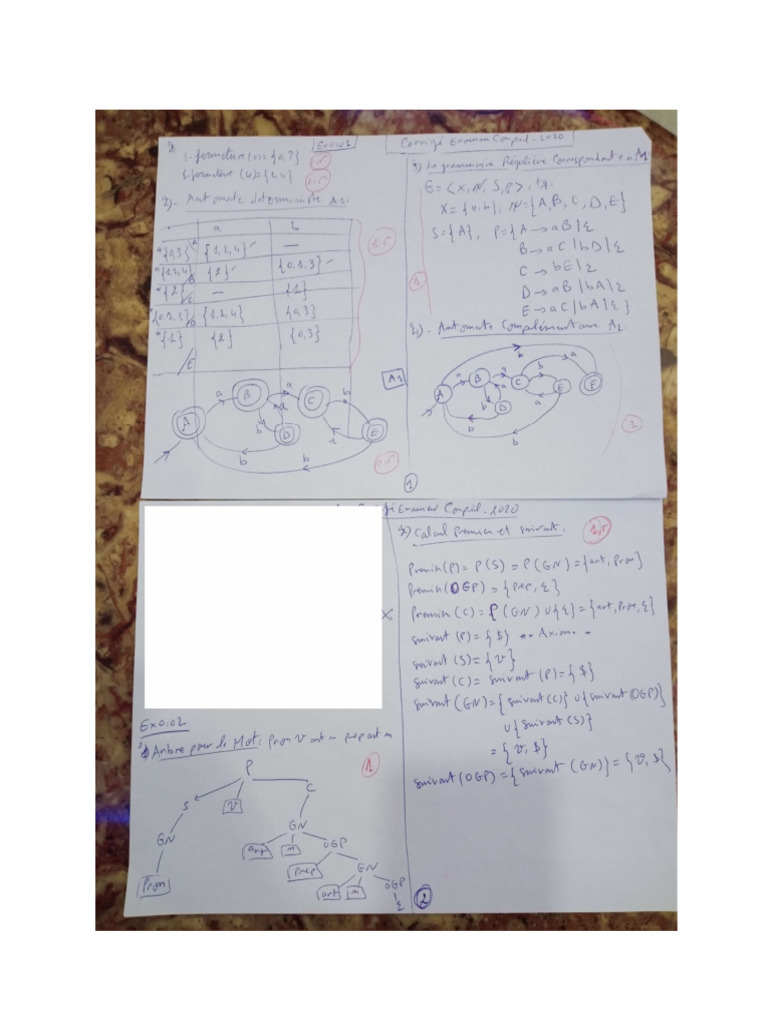 Exo:01
1)
ε-fermeture(0)={0,3}
ε-fermeture(4)={2,4}
0.5
0.5
2)- Automate déterministe A1:
a b
*{0,3} A {1,2,4} —
*{1,2,4} B {2} {0,1,3}
*{2} C — {1}
*{0,1,3} D {1,2,4} {0,3}
*{1} E {2} {0,3}
1.5
A1
A a B a C b E
b a D a
b
b
0.5
Corrigé Examen Compil. 2020
3) La grammaire Régulière Correspondante à A1
E=<X, N, S, P>, tq.
X={a,b}, N={A,B,C,D,E}
S={A}, P={A→aB|ε
B→aC|bD|ε
C→bE|ε
D→aB|bA|ε
E→aC|bA|ε}
1
4)- Automate Complémentaire A2:
b
A a B a C b E a F
b a D a
b
b
1
1
Corrigé Examen Compil. 2020
Exo:02
1) Arbre pour le Mot: Pron v art n prep art n
1
P
S v C
GN GN
Pron art n OGP
prep GN
art n OGP
ε
2) Calcul Premier et suivant.
1,5
Premier(P)=P(S)=P(GN)={art, Pron}
Premier(OGP)={prep, ε}
Premier(C)=P(GN)∪{ε}={art, Pron, ε}
suivant(P)={$} Axiome
suivant(S)={v}
suivant(C)=suivant(P)={$}
suivant(GN)={suivant(C)}∪{suivant(OGP)}
∪{suivant(S)}
={v,$}
suivant(OGP)={suivant(GN)}={v,$}
2